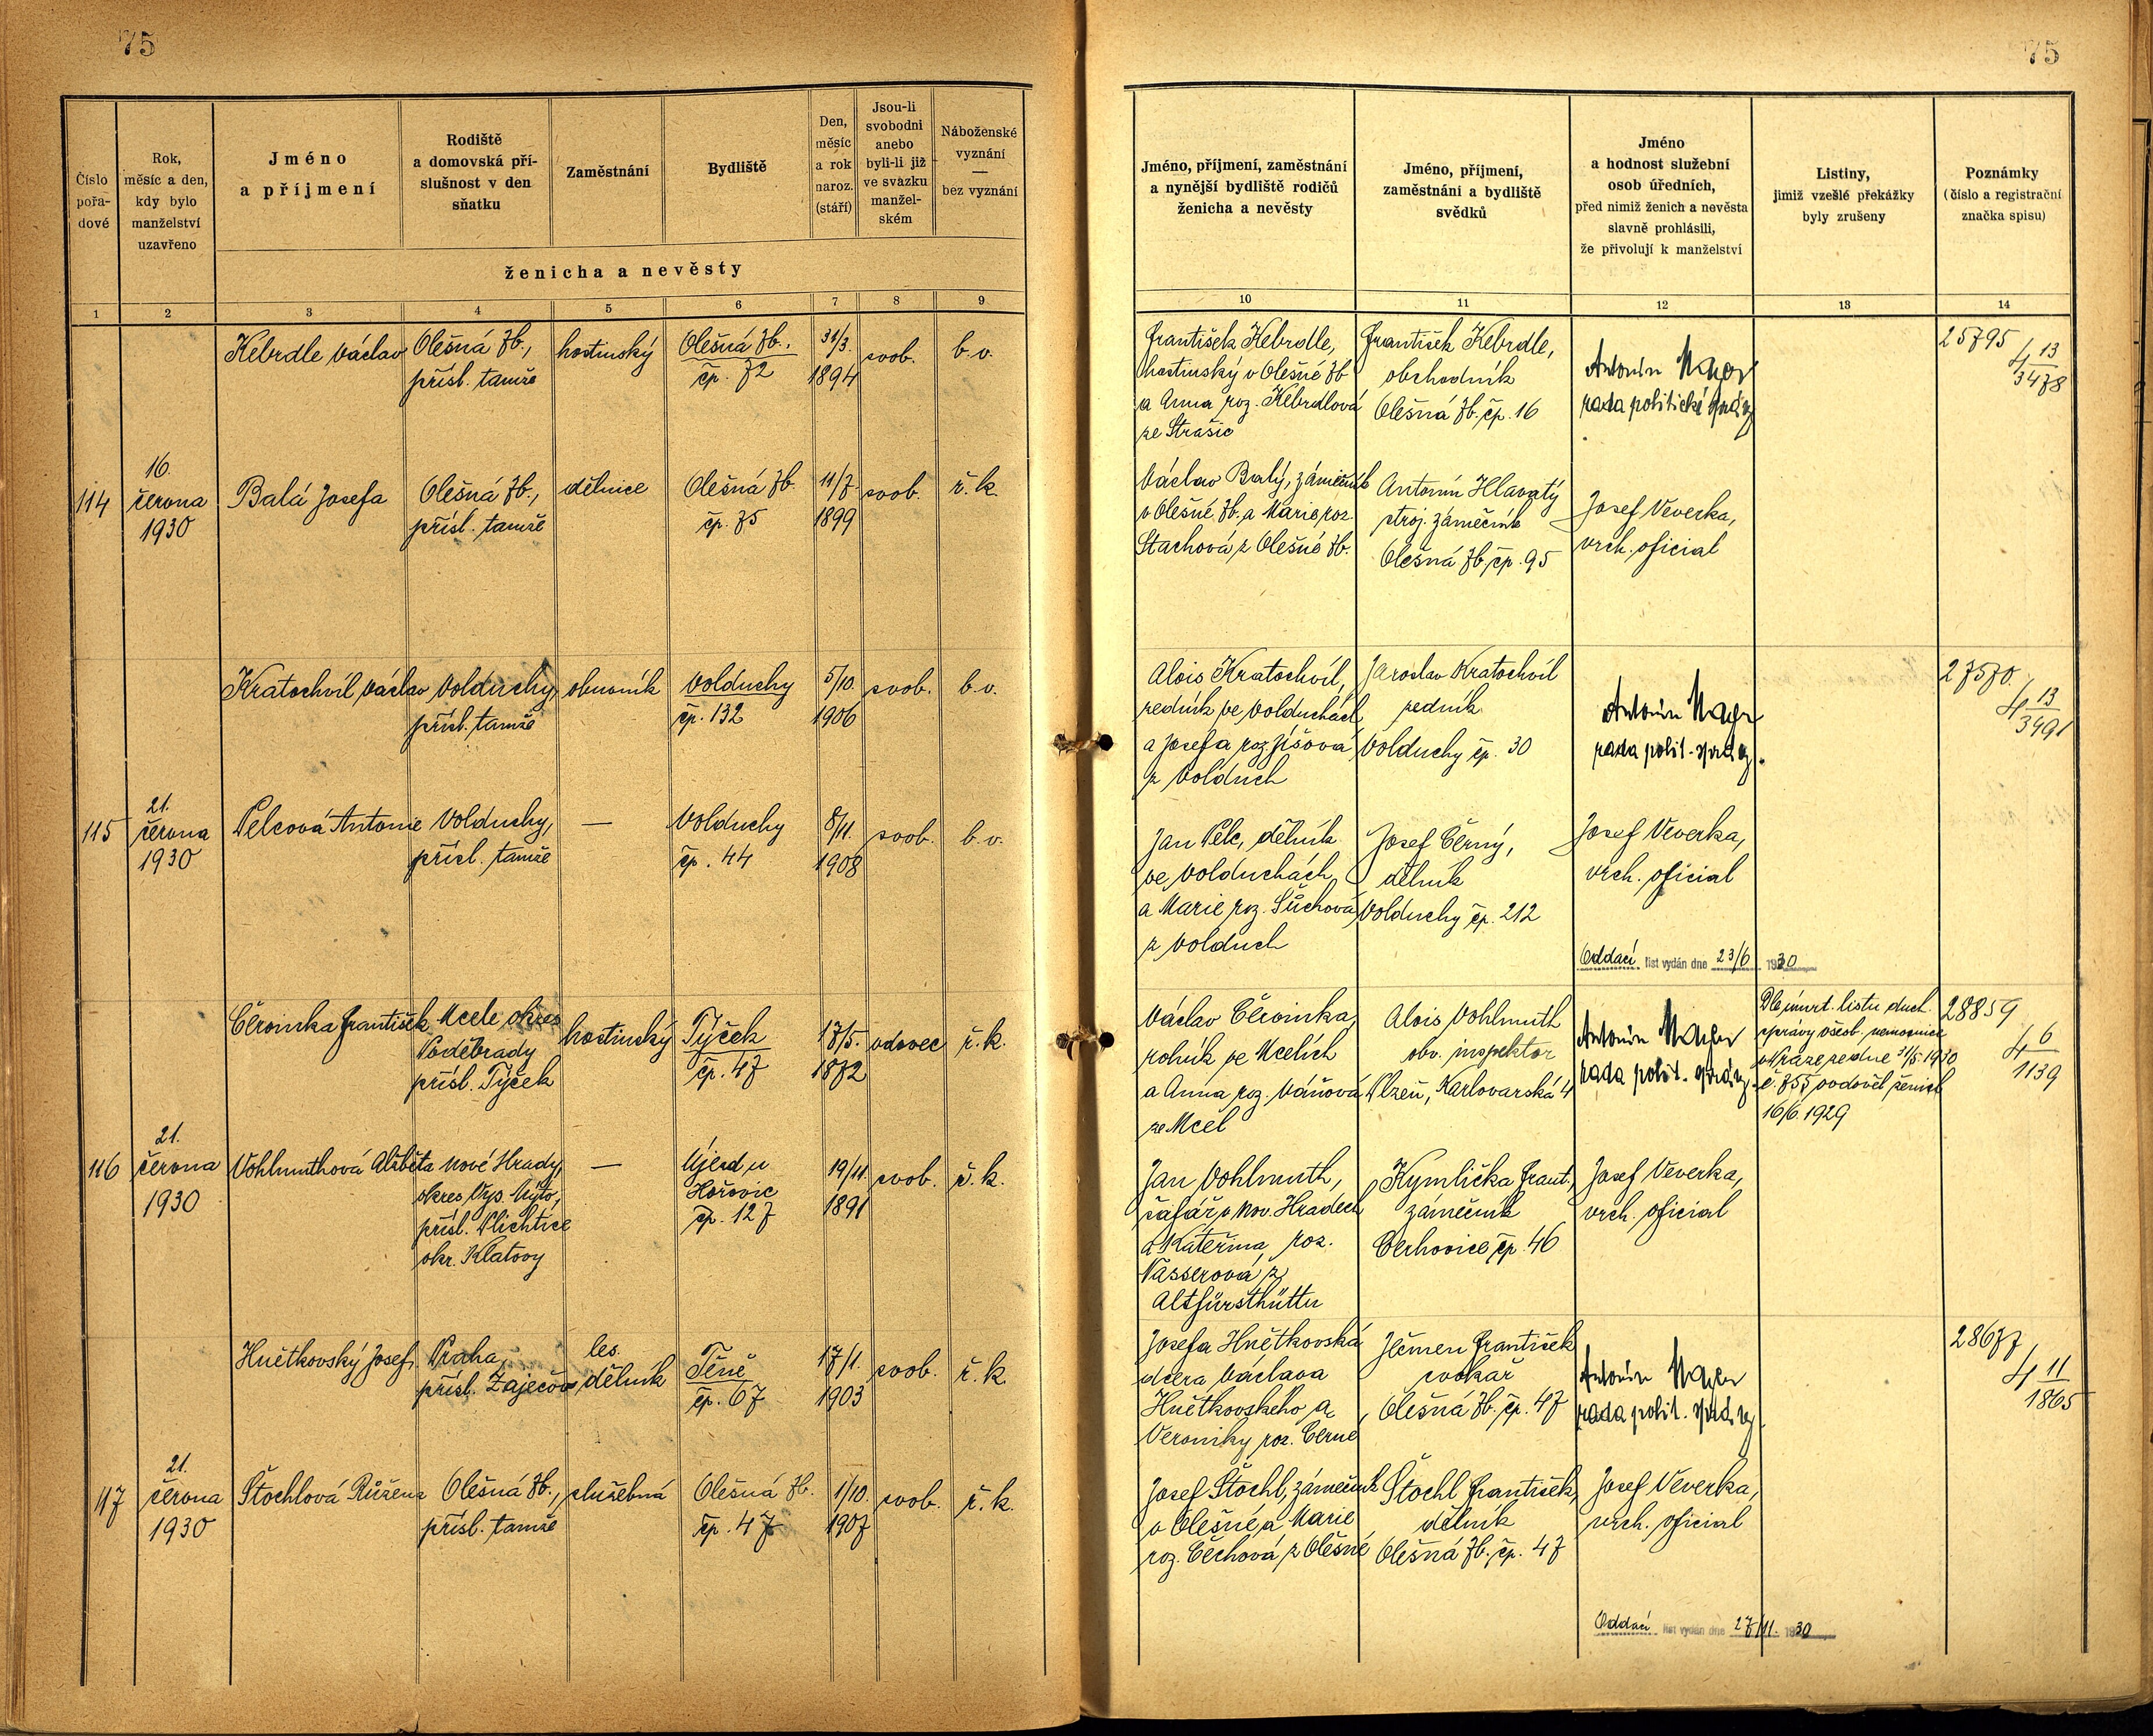 75
75
Číslo
pořa-
dové
Rok,
měsíc a den,
kdy bylo
manželství
uzavřeno
Jméno
a příjmení
Rodiště
a domovská pří-
slušnost v den
sňatku
Zaměstnání
Bydliště
Den,
měsíc
a rok
naroz.
(stáří)
Jsou-li
svobodni
anebo
byli-li již
ve svazku
manžel-
ském
Náboženské
vyznání
—
bez vyznání
ženicha a nevěsty
Jméno, příjmení, zaměstnání
a nynější bydliště rodičů
ženicha a nevěsty
Jméno, příjmení,
zaměstnání a bydliště
svědků
Jméno
a hodnost služební
osob úředních,
před nimiž ženich a nevěsta
slavně prohlásili,
že přivolují k manželství
Listiny,
jimiž vzešlé překážky
byly zrušeny
Poznámky
(číslo a registrační
značka spisu)
1 2 3 4 5 6 7 8 9 10 11 12 13 14
Kebrdle Václav
Olešná Zb.,
přísl. tamže
hostinský
Olešná Zb.,
čp. 72
31/3.
1894
svob.
b.v.
František Kebrdle,
hostinský v Olešné Zb
a Anna roz. Kebrdlová
ze Strašic
František Kebrdle,
obchodník
Olešná Zb. čp. 16
Antonín
rada politické správy
25795
4 13
3478
114
16.
června
1930
Balá Josefa
Olešná Zb.,
přísl. tamže
dělnice
Olešná Zb.
čp. 75
11/7.
1899
svob.
ř.k.
Václav Balý, zámečník
v Olešné Zb. a Marie roz.
Stachová z Olešné Zb.
Antonín Hlavatý
stroj. zámečník
Olešná Zb. čp. 95
Josef Veverka,
vrch. oficial
Kratochvíl Václav
Volduchy,
přísl. tamže
obuvník
Volduchy
čp. 132
5/10.
1906
svob.
b.v.
Alois Kratochvíl,
zedník ve Volduchách
a Josefa roz. Jíšová
z Volduch
Jaroslav Kratochvíl
zedník
Volduchy čp. 30
Antonín
rada polit. správy.
27570.
4 13
3491
115
21.
června
1930
Pelcová Antonie
Volduchy,
přísl. tamže
—
Volduchy
čp. 44
8/11.
1908
svob.
b.v.
Jan Pelc, dělník
ve Volduchách
a Marie roz. Šůchová
z Volduch
Josef Černý,
dělník
Volduchy čp. 212
Josef Veverka,
vrch. oficial
Oddací list vydán dne 23/6 1930
Červinka František
Mcele okres
Poděbrady
přísl. Týček
hostinský
Týček
čp. 47
17/5.
1872
vdovec
ř.k.
Václav Červinka
rolník ve Mcelích
a Anna roz. Váňová
ze Mcel
Alois Vohlmuth
obv. inspektor
Plzeň, Karlovarská 4
Antonín
rada polit. správy.
Dle úmrt. listu duch.
správy všeob. nemocnice
v Praze ze dne 31/5 1930
č. 755 ovdověl ženich
16/6 1929
28859
4 6
1139
116
21.
června
1930
Vohlmuthová Alžběta
Nové Hrady,
okres Vys. Mýto,
přísl. Plichtice
okr. Klatovy
—
Újezd u
Hořovic
čp. 127
19/11.
1891
svob.
ř.k.
Jan Vohlmuth,
šafář v Nov. Hradech
a Kateřina, roz.
Vasserová z
Altfürsthüttu
Kymlička Frant.,
zámečník
Cerhovice čp. 46
Josef Veverka,
vrch. oficial
Hnětkovský Josef,
Praha,
přísl. Zaječov
les.
dělník
Těně
čp. 67
17/1.
1903
svob.
ř.k.
Josefa Hnětkovská
dcera Václava
Hnětkovského a
Veroniky roz. Černé
Ječmen František
cvokař
Olešná Zb. čp. 47
Antonín
rada polit. správy.
28677
4 11
1865
117
21.
června
1930
Štochlová Růžena
Olešná Zb.,
přísl. tamže
služebná
Olešná Zb.
čp. 47
1/10.
1907
svob.
ř.k.
Josef Štochl, zámečník
v Olešné a Marie
roz. Čechová z Olešné
Štochl František,
dělník
Olešná Zb. čp. 47
Josef Veverka,
vrch. oficial
Oddací list vydán dne 27/11. 1930